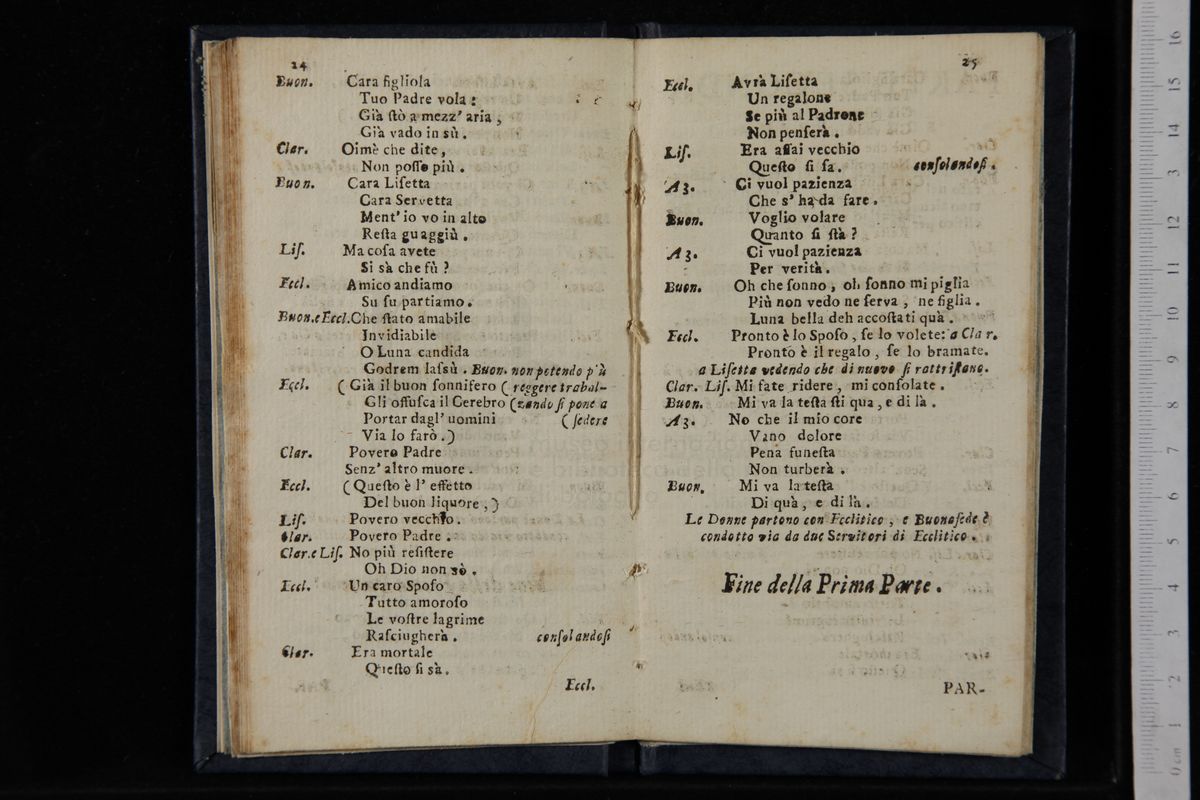 24
Buon. Cara figliola
Tuo Padre vola:
Già ſtò a mezz' aria,
Già vado in sù.
Clar. Oimè che dite,
Non poſſo più.
Buon. Cara Liſetta
Cara Servetta
Ment' io vo in alto
Reſta quaggiù.
Liſ. Ma coſa avete
Si sà che fù?
Eccl. Amico andiamo
Su ſu partiamo.
Buon.e Eccl. Che ſtato amabile
Invidiabile
O Luna candida
Godrem laſsù. Buon. non potendo più
Eccl. (Già il buon ſonnifero (reggere trabal-
Gli offuſca il Cerebro (zando ſi pone a
Portar dagl' uomini (ſedere
Via lo farò.)
Clar. Povero Padre
Senz' altro muore.
Eccl. (Queſto è l' effetto
Del buon liquore,)
Liſ. Povero vecchio.
Clar. Povero Padre.
Clar.e Liſ. No più reſiſtere
Oh Dio non sò.
Eccl. Un caro Spoſo
Tutto amoroſo
Le voſtre lagrime
Raſciugherà. conſolandoſi
Clar. Era mortale
Queſto ſi sà.
Eccl.
25
Eccl. Avrà Liſetta
Un regalone
Se più al Padrone
Non penſerà.
Liſ. Era aſſai vecchio
Queſto ſi ſa. conſolandoſi.
A 3. Ci vuol pazienza
Che s' ha da fare.
Buon. Voglio volare
Quanto ſi ſtà?
A 3. Ci vuol pazienza
Per verità.
Buon. Oh che ſonno, oh ſonno mi piglia
Più non vedo ne ſerva, ne figlia.
Luna bella deh accoſtati quà.
Eccl. Pronto è lo Spoſo, ſe lo volete: a Clar.
Pronto è il regalo, ſe lo bramate.
a Liſetta vedendo che di nuovo ſi rattriſtano.
Clar. Liſ. Mi fate ridere, mi conſolate.
Buon. Mi va la teſta ſti qua, e di là.
A 3. No che il mio core
Vano dolore
Pena funeſta
Non turberà.
Buon. Mi va la teſta
Di quà, e di là.
Le Donne partono con Ecclitico, e Buonafede è
condotto via da due Servitori di Ecclitico.
Fine della Prima Parte.
PAR-